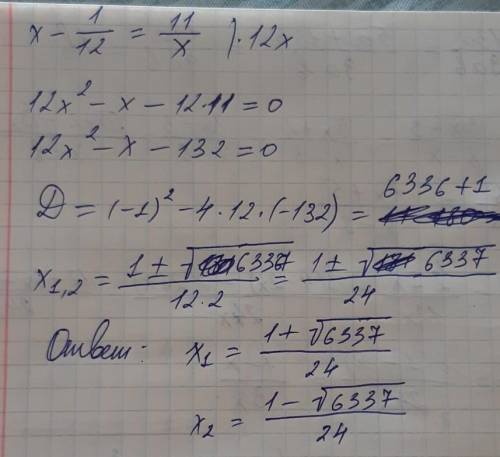 x - 1/12 = 11/x ) · 12x
12x² - x - 12·11 = 0
12x² - x - 132 = 0
D = (-1)² - 4·12·(-132) = 6336 + 1
x₁,₂ = (1 ± √6337)/(12·2) = (1 ± √6337)/24
Ответ: x₁ = (1 + √6337)/24
x₂ = (1 - √6337)/24